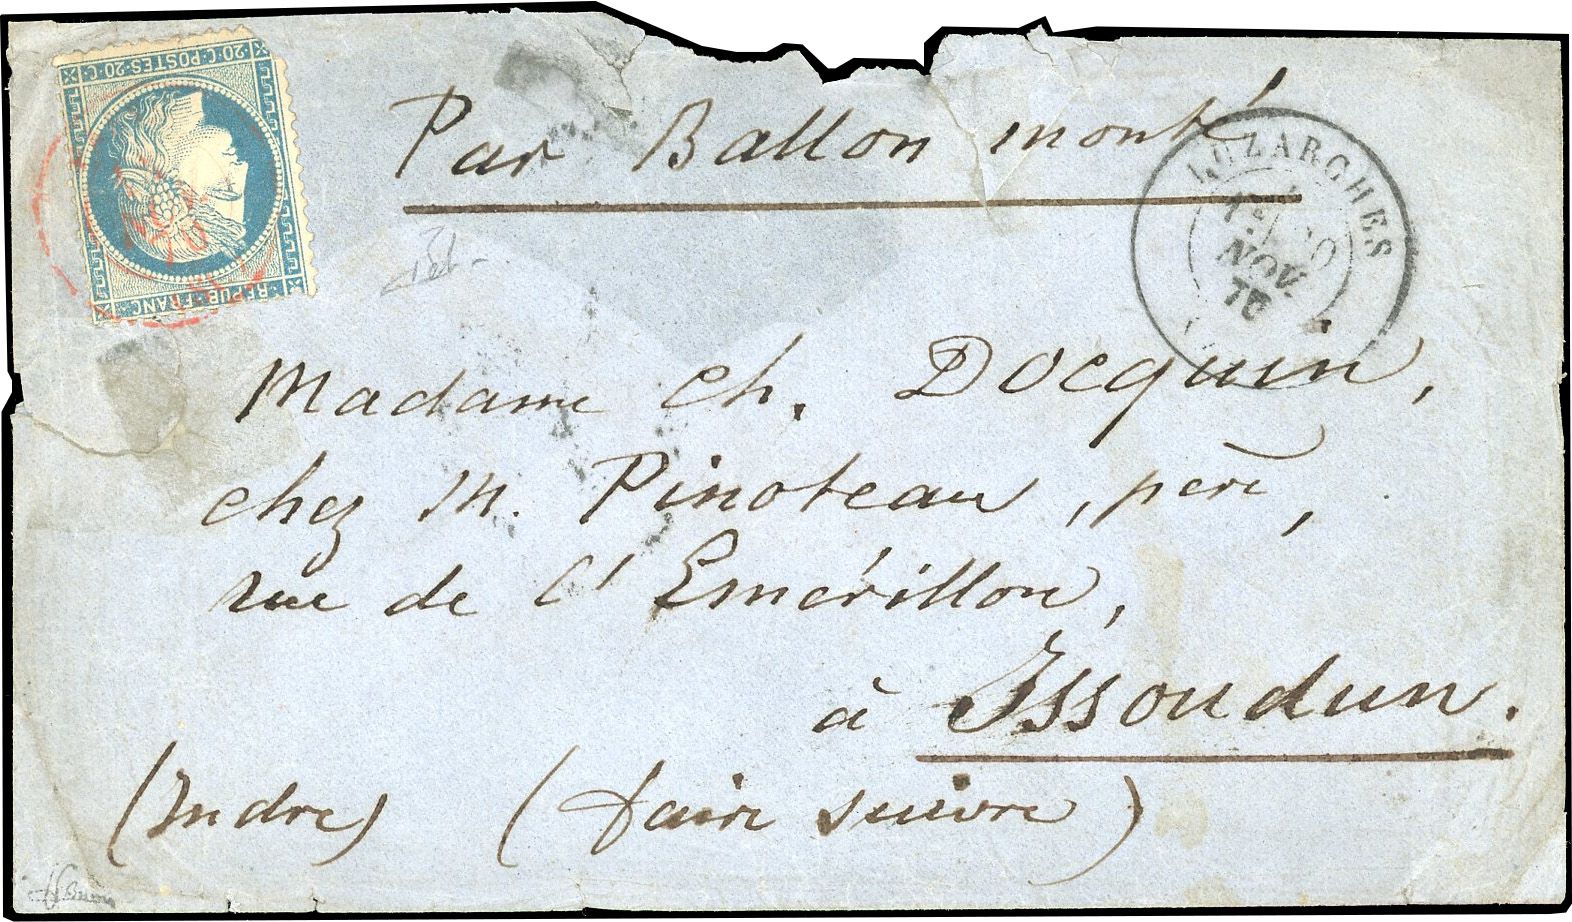 20·C·POSTES·20·C
REPUB·FRANC
Par Ballon monté
LUZARCHES
NOV.
70
Madame Ch. Docquin,
chez M. Pinoteau, père,
rue de l'Emérillon,
à Issoudun.
(Indre) (faire suivre)